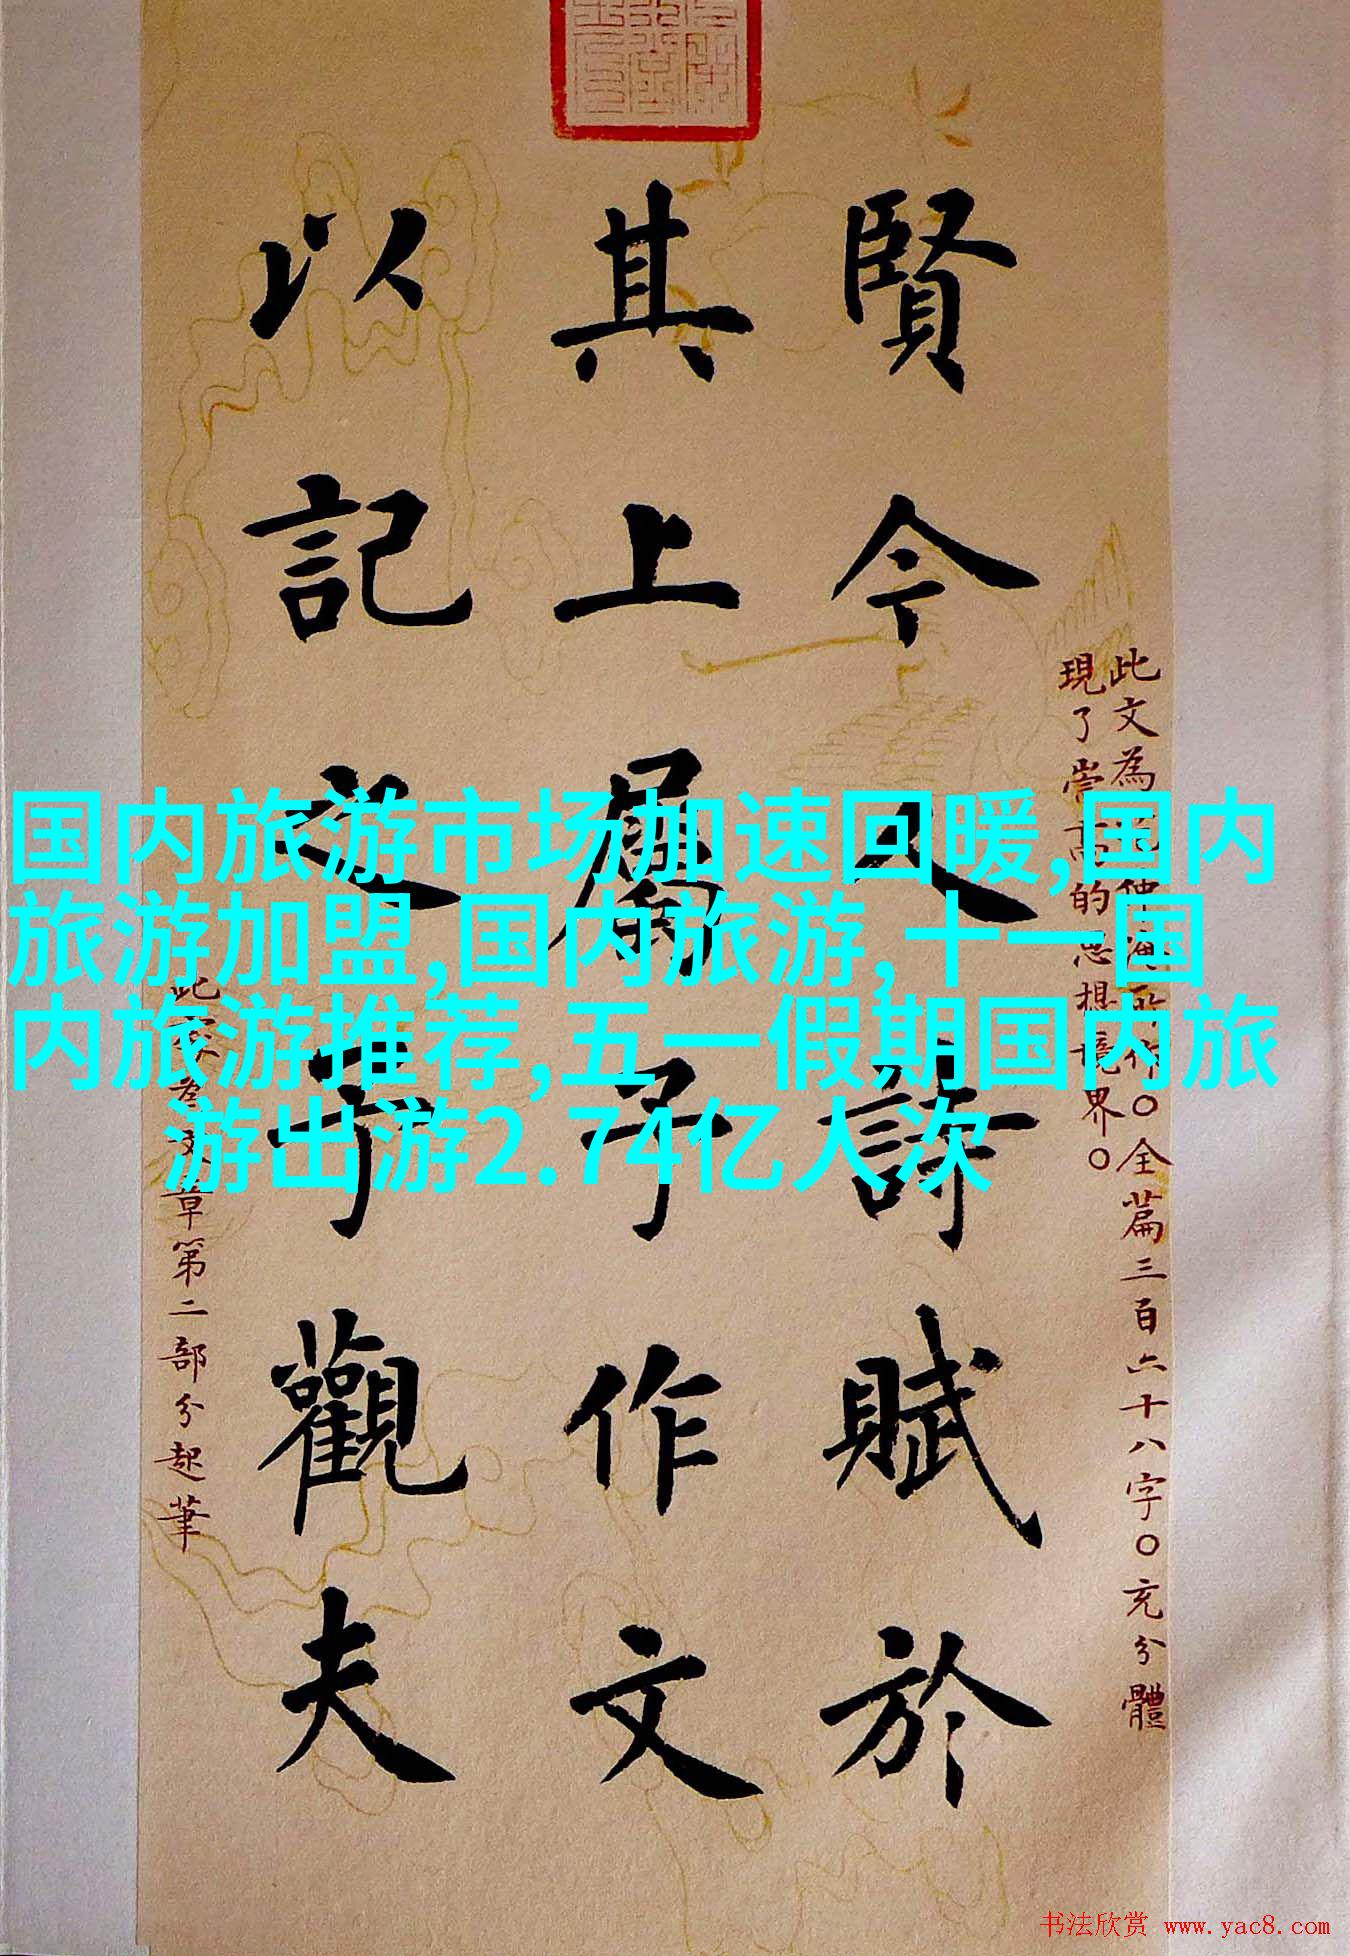 賢今人詩賦於
其上屬予作文
以記之予觀夫
此文為范仲淹所作○全篇三百六十八字○充分體
現了崇高的思想境界○
此案為文章第二部分起筆
国内旅游市场加速回暖,国内
旅游加盟,国内旅游,十一国
内旅游推荐,五一假期国内旅
游出游2.74亿人次
书法欣赏 www.yac8.com